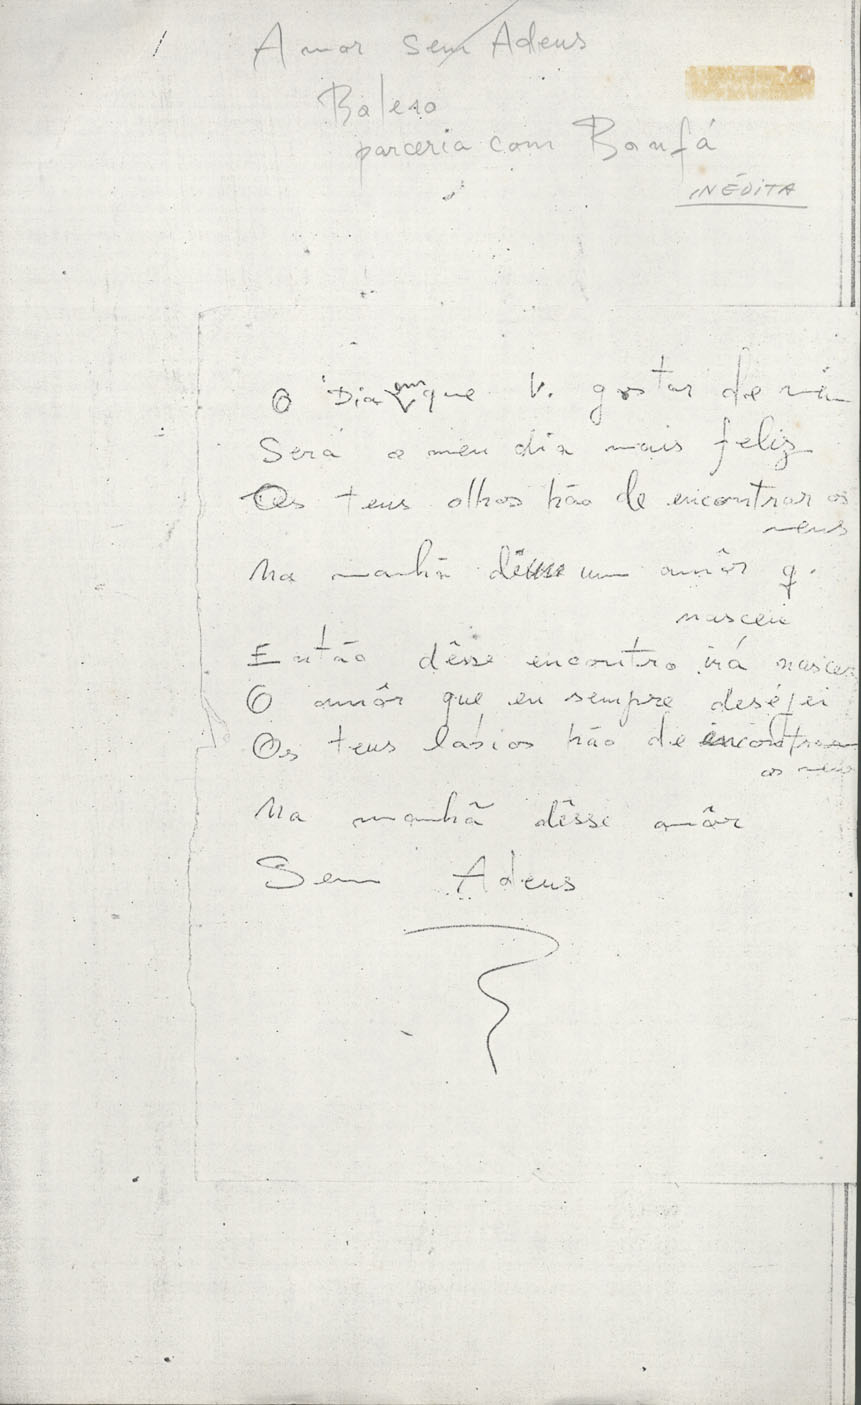 Amor sem Adeus
Bolero
parceria com Bonfá
INÉDITA
O Dia em que V. gostar de mim
Será o meu dia mais feliz
Os teus olhos hão de encontrar os
meus
Na manhã de um amôr q.
nasceu
Então dêsse encontro irá nascer
O amôr que eu sempre desejei
Os teus lábios hão de encontrar
os meus
Na manhã dêsse amôr
Sem Adeus